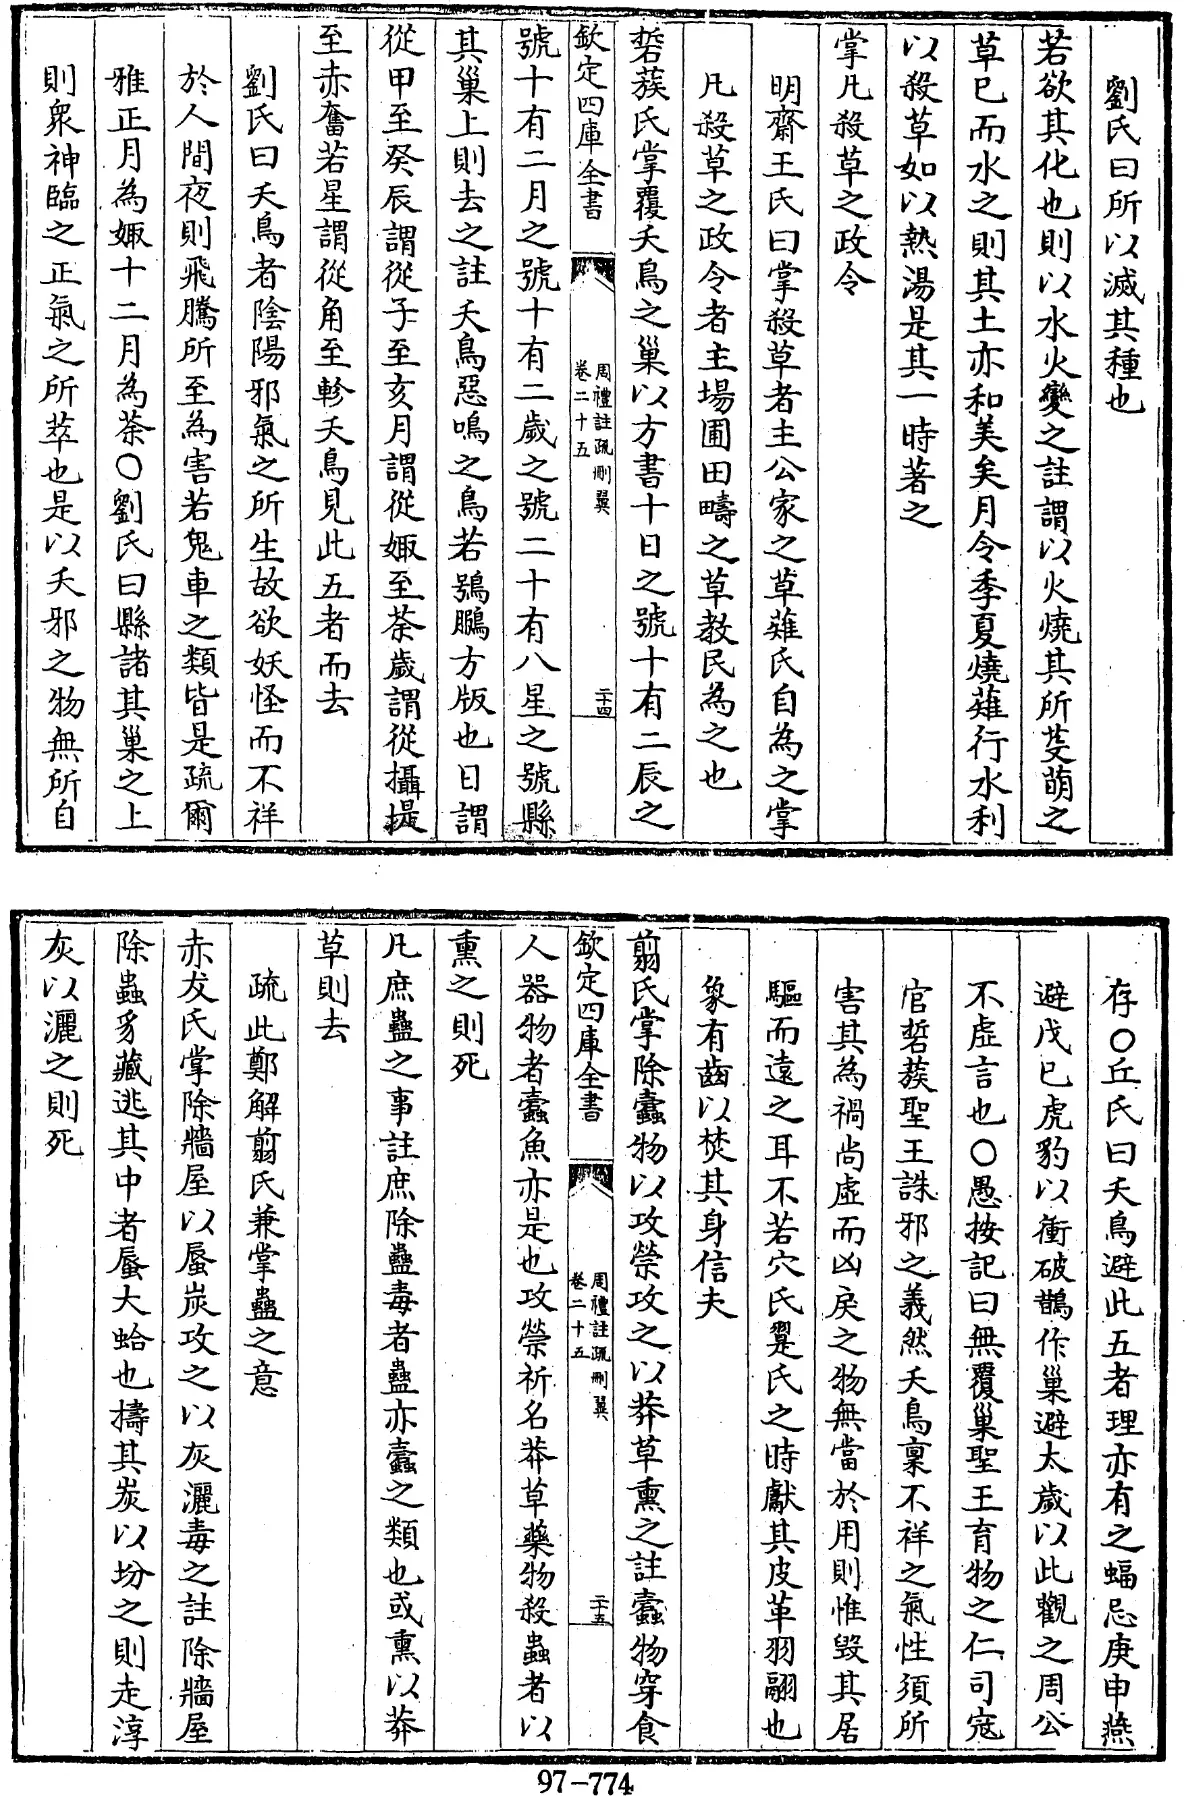 劉氏曰所以滅其種也
若欲其化也則以水火變之註謂以火燒其所芟萌之
草已而水之則其土亦和美矣月令季夏燒薙行水利
以殺草如以熱湯是其一時著之
掌凡殺草之政令
明齋王氏曰掌殺草者主公家之草薙氏自為之掌
凡殺草之政令者主場圃田疇之草教民為之也
硩蔟氏掌覆夭鳥之巢以方書十日之號十有二辰之
欽定四庫全書
周禮註疏刪翼
卷二十五
二十四
號十有二月之號十有二歲之號二十有八星之號縣
其巢上則去之註夭鳥惡鳴之鳥若鴞鵩方版也日謂
從甲至癸辰謂從子至亥月謂從娵至荼歲謂從攝提
至赤奮若星謂從角至軫夭鳥見此五者而去
劉氏曰夭鳥者陰陽邪氣之所生故欲妖怪而不祥
於人間夜則飛騰所至為害若鬼車之類皆是疏爾
雅正月為娵十二月為荼○劉氏曰縣諸其巢之上
則衆神臨之正氣之所萃也是以夭邪之物無所自
存○丘氏曰夭鳥避此五者理亦有之蝠忌庚申燕
避戊巳虎豹以衝破鵲作巢避太歲以此觀之周公
不虛言也○愚按記曰無覆巢聖王育物之仁司寇
官硩蔟聖王誅邪之義然夭鳥稟不祥之氣性須所
害其為禍尚虛而凶戾之物無當於用則惟毀其居
驅而遠之耳不若穴氏翨氏之時獻其皮革羽翮也
象有齒以焚其身信夫
翦氏掌除蠹物以攻禜攻之以莽草熏之註蠹物穿食
欽定四庫全書
周禮註疏刪翼
卷二十五
二十五
人器物者蠹魚亦是也攻禜祈名莽草藥物殺蟲者以
熏之則死
凡庶蠱之事註庶除蠱毒者蠱亦蠹之類也或熏以莽
草則去
疏此鄭解翦氏兼掌蠱之意
赤犮氏掌除牆屋以蜃炭攻之以灰灑毒之註除牆屋
除蟲豸藏逃其中者蜃大蛤也擣其炭以坋之則走淳
灰以灑之則死
97-774